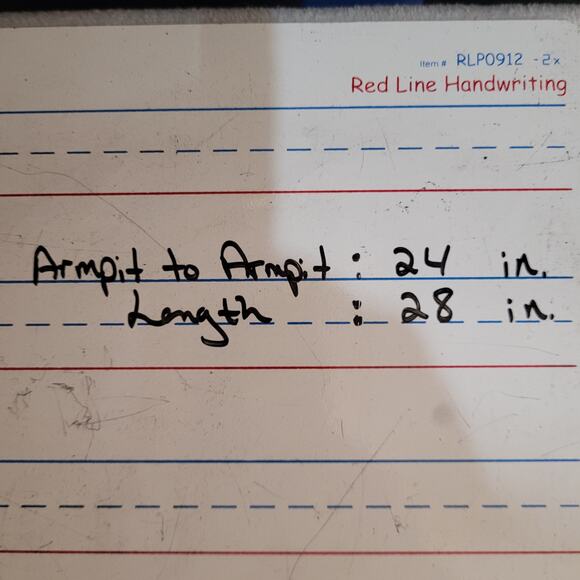 Item # RLP0912 -2x
Red Line Handwriting
Armpit to Armpit : 24 in.
Length : 28 in.